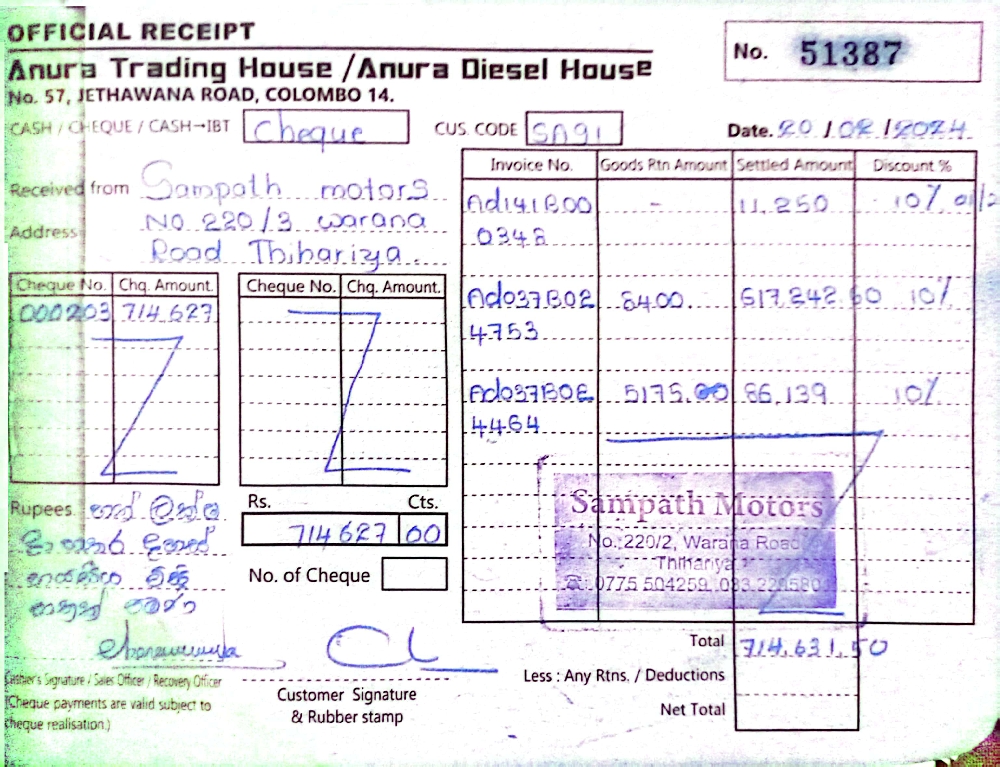 OFFICIAL RECEIPT
No. 51387
Anura Trading House / Anura Diesel House
No. 57, JETHAWANA ROAD, COLOMBO 14.
CASH / CHEQUE / CASH-IBT Cheque CUS. CODE SA91 Date. 20/02/2024
Received from Sampath motors
Address No 220/3 warana
Road Thihariya.
Invoice No. Goods Rtn Amount Settled Amount Discount %
Ad141B00 - 11,250 10%
0348
Ad037B02 6400 617,242.50 10%
4753
Ad037B02 5175.00 86,139 10%
4464
Cheque No. Chq. Amount. Cheque No. Chq. Amount.
000203 714627
Rupees. හත් ලක්ෂ
Rs. Cts.
714627 00
No. of Cheque
Sampath Motors
No: 220/2, Warana Road
Thihariya
0775 504259,
Total 714,631.50
Less : Any Rtns. / Deductions
Net Total
Cashier's Signature / Sales Officer / Recovery Officer
(Cheque payments are valid subject to
cheque realisation.)
Customer Signature
& Rubber stamp